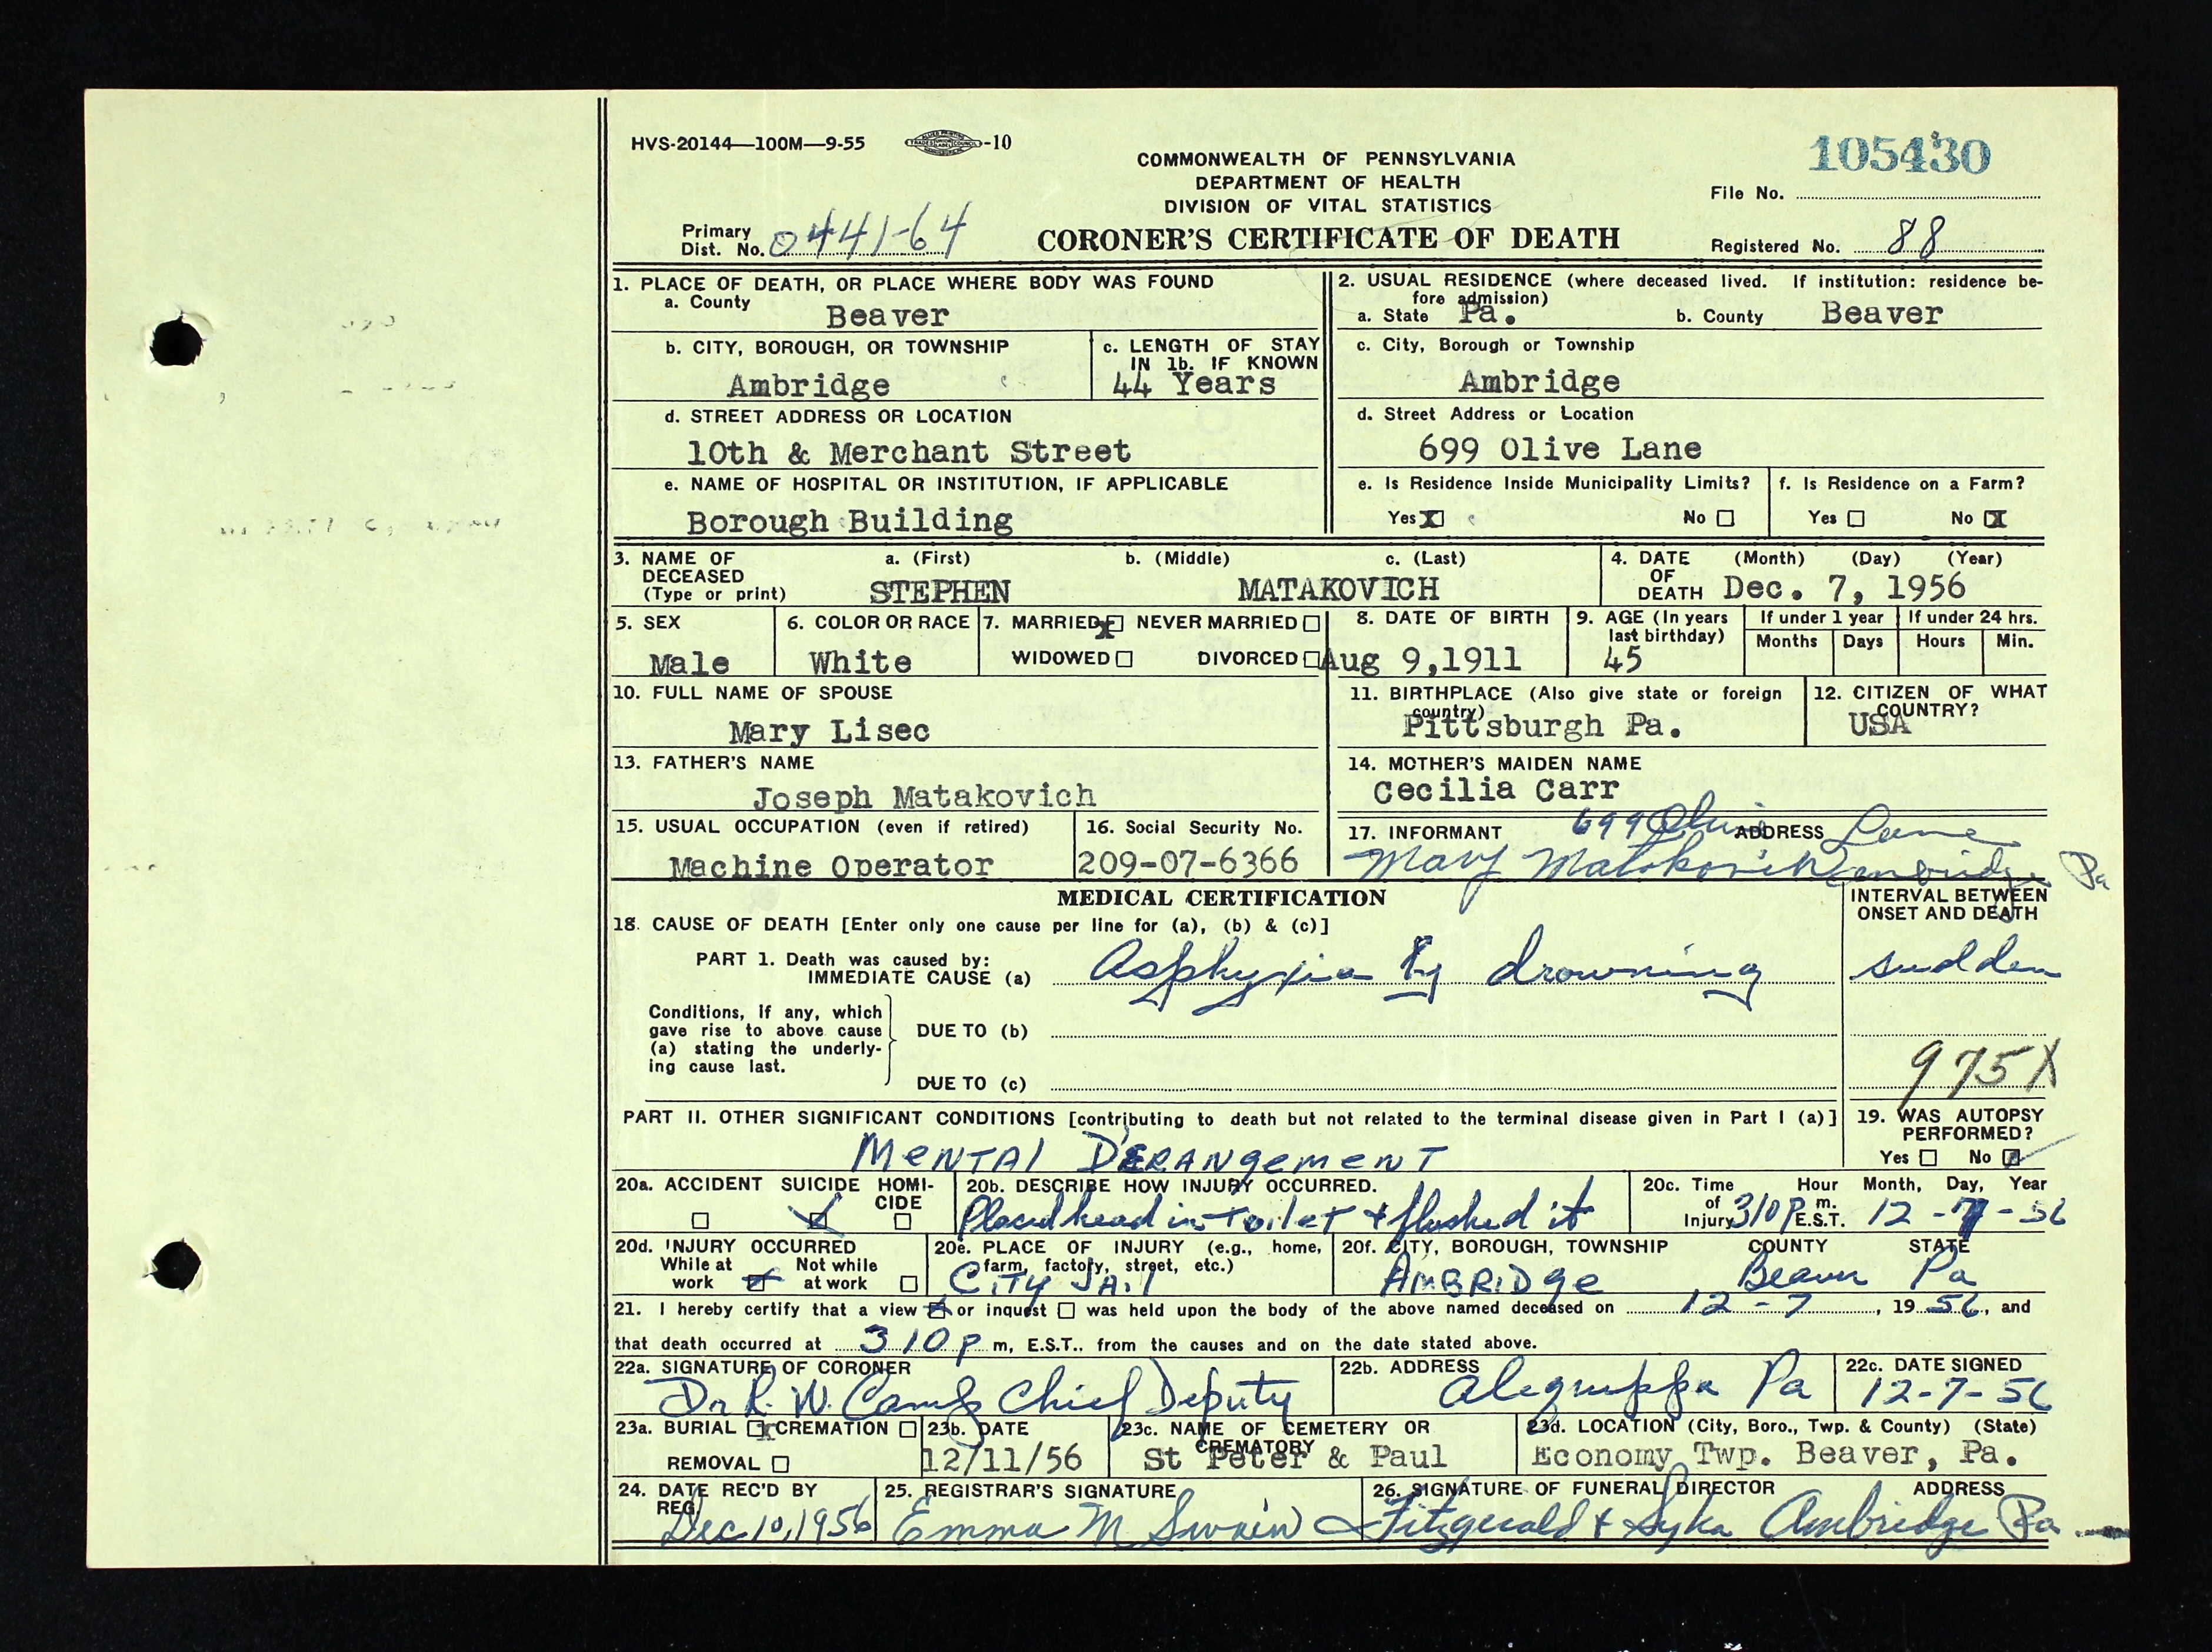 HVS-20144—100M—9-55 -10
105430
COMMONWEALTH OF PENNSYLVANIA
DEPARTMENT OF HEALTH
DIVISION OF VITAL STATISTICS
File No.
Primary Dist. No. 0441-64
CORONER'S CERTIFICATE OF DEATH
Registered No. 88
1. PLACE OF DEATH, OR PLACE WHERE BODY WAS FOUND
a. County Beaver
2. USUAL RESIDENCE (where deceased lived. If institution: residence before admission)
a. State Pa. b. County Beaver
b. CITY, BOROUGH, OR TOWNSHIP
Ambridge
c. LENGTH OF STAY IN 1b. IF KNOWN
44 Years
c. City, Borough or Township
Ambridge
d. STREET ADDRESS OR LOCATION
10th & Merchant Street
d. Street Address or Location
699 Olive Lane
e. NAME OF HOSPITAL OR INSTITUTION, IF APPLICABLE
Borough Building
e. Is Residence Inside Municipality Limits?
Yes X No
f. Is Residence on a Farm?
Yes No X
3. NAME OF DECEASED (Type or print)
a. (First) b. (Middle) c. (Last)
STEPHEN MATAKOVICH
4. DATE OF DEATH (Month) (Day) (Year)
Dec. 7, 1956
5. SEX
Male
6. COLOR OR RACE
White
7. MARRIED X NEVER MARRIED
WIDOWED DIVORCED
8. DATE OF BIRTH
Aug 9,1911
9. AGE (In years last birthday)
45
If under 1 year
Months Days
If under 24 hrs.
Hours Min.
10. FULL NAME OF SPOUSE
Mary Lisec
11. BIRTHPLACE (Also give state or foreign country)
Pittsburgh Pa.
12. CITIZEN OF WHAT COUNTRY?
USA
13. FATHER'S NAME
Joseph Matakovich
14. MOTHER'S MAIDEN NAME
Cecilia Carr
15. USUAL OCCUPATION (even if retired)
Machine Operator
16. Social Security No.
209-07-6366
17. INFORMANT ADDRESS
699 Olive Lane
Mary Matakovich Ambridge Pa
MEDICAL CERTIFICATION
INTERVAL BETWEEN ONSET AND DEATH
18. CAUSE OF DEATH [Enter only one cause per line for (a), (b) & (c)]
PART 1. Death was caused by:
IMMEDIATE CAUSE (a) Asphyxia by drowning sudden
Conditions, if any, which gave rise to above cause (a) stating the underlying cause last.
DUE TO (b)
DUE TO (c)
975X
PART II. OTHER SIGNIFICANT CONDITIONS [contributing to death but not related to the terminal disease given in Part I (a)]
MENTAL DERANGEMENT
19. WAS AUTOPSY PERFORMED?
Yes No
20a. ACCIDENT SUICIDE HOMICIDE
20b. DESCRIBE HOW INJURY OCCURRED.
Placed head in toilet & flushed it
20c. Time of Injury Hour Month, Day, Year
310 P m. E.S.T. 12-7-56
20d. INJURY OCCURRED
While at work Not while at work
20e. PLACE OF INJURY (e.g., home, farm, factory, street, etc.)
CITY JAIL
20f. CITY, BOROUGH, TOWNSHIP COUNTY STATE
AMBRIDGE Beaver Pa
21. I hereby certify that a view or inquest was held upon the body of the above named deceased on 12-7, 1956, and
that death occurred at 310 p m, E.S.T.. from the causes and on the date stated above.
22a. SIGNATURE OF CORONER
Dr R. W. Camp Chief Deputy
22b. ADDRESS
Aliquippa Pa
22c. DATE SIGNED
12-7-56
23a. BURIAL X CREMATION
REMOVAL
23b. DATE
12/11/56
23c. NAME OF CEMETERY OR CREMATORY
St Peter & Paul
23d. LOCATION (City, Boro., Twp. & County) (State)
Economy Twp. Beaver, Pa.
24. DATE REC'D BY REG.
Dec 10, 1956
25. REGISTRAR'S SIGNATURE
Emma M
26. SIGNATURE OF FUNERAL DIRECTOR ADDRESS
Fitzgerald & Syka Ambridge Pa.